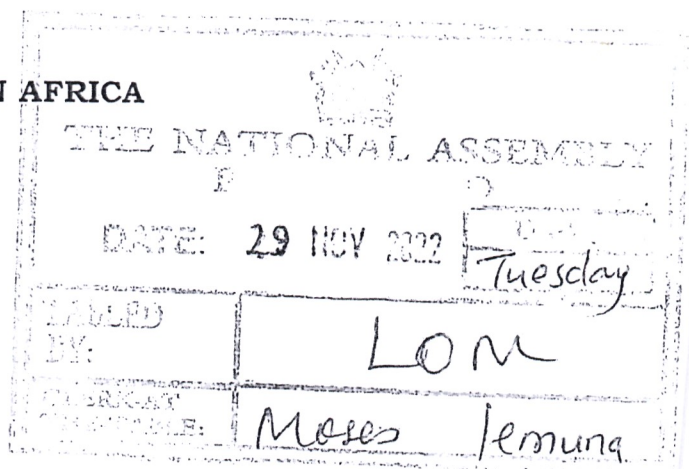 N AFRICA
THE NATIONAL ASSEMBLY
P
DATE: 29 NOV 2022
DAY
Tuesday
BY:
LOM
Moses Lemuna